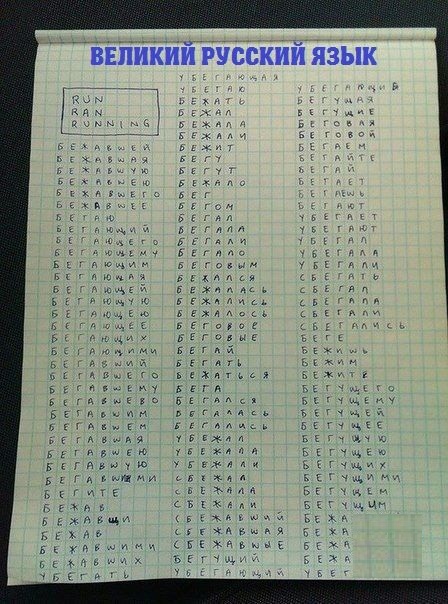 ВЕЛИКИЙ РУССКИЙ ЯЗЫК
RUN
RAN
RUNNING
БЕЖАВШЕЙ
БЕЖАВШАЯ
БЕЖАВШУЮ
БЕЖАВШЕЮ
БЕЖАВШЕГО
БЕЖАВШЕЕ
БЕГАЮ
БЕГАЮЩИЙ
БЕГАЮЩЕГО
БЕГАЮЩЕМУ
БЕГАЮЩИМ
БЕГАЮЩАЯ
БЕГАЮЩЕЙ
БЕГАЮЩУЮ
БЕГАЮЩЕЮ
БЕГАЮЩЕЕ
БЕГАЮЩИХ
БЕГАЮЩИМИ
БЕГАВШИЙ
БЕГАВШЕГО
БЕГАВШЕМУ
БЕГАВШЕВО
БЕГАВШИМ
БЕГАВШЕМ
БЕГАВШАЯ
БЕГАВШЕЮ
БЕГАВШУЮ
БЕГАВШИМИ
БЕГИТЕ
БЕЖАВ
БЕЖАВЩИ
БЕЖАВ
БЕЖАВШИМИ
БЕЖАВШИХ
УБЕГАТЬ
УБЕГАЮЩАЯ
УБЕГАЮ
БЕЖАТЬ
БЕЖАЛ
БЕЖАЛА
БЕЖАЛИ
БЕЖИТ
БЕГУ
БЕГУТ
БЕЖАЛО
БЕГ
БЕГОМ
БЕГАЛ
БЕГАЛА
БЕГАЛИ
БЕГАЛО
БЕГОВЫМ
БЕЖАЛСЯ
БЕЖАЛАСЬ
БЕЖАЛИСЬ
БЕЖАЛОСЬ
БЕГОВОЕ
БЕГОВЫЕ
БЕГАЙ
БЕГАТЬ
БЕЖАТЬСЯ
БЕГА
БЕГАЛСЯ
БЕГАЛАСЬ
БЕГАЛИСЬ
УБЕЖАЛ
УБЕЖАЛА
УБЕЖАЛИ
СБЕЖАЛ
СБЕЖАЛА
СБЕЖАЛИ
СБЕЖАВШИЙ
СБЕЖАВШАЯ
СБЕЖАВШЫЕ
БЕГУЩИЙ
УБЕГАЮЩИЙ
УБЕГАЮЩИЕ
БЕГУЩАЯ
БЕГУЩИЕ
БЕГОВАЯ
БЕГОВОЙ
БЕГАЕМ
БЕГАЙТЕ
БЕГАЙ
БЕГАЕТ
БЕГАЕШЬ
БЕГАЮТ
УБЕГАЕТ
УБЕГАЮТ
УБЕГАЛ
УБЕГАЛА
УБЕГАЛИ
СБЕГАТЬ
СБЕГАЛ
СБЕГАЛА
СБЕГАЛИ
СБЕГАЛИСЬ
БЕГЕ
БЕЖИШЬ
БЕЖИМ
БЕЖИТЕ
БЕГУЩЕГО
БЕГУЩЕМУ
БЕГУЩЕЙ
БЕГУЩУЮ
БЕГУЩЕЮ
БЕГУЩИХ
БЕГУЩИМИ
БЕГУЩЕМ
БЕГУЩЫМ
БЕЖА
БЕЖА
БЕЖА
БЕЖА
УБЕГ